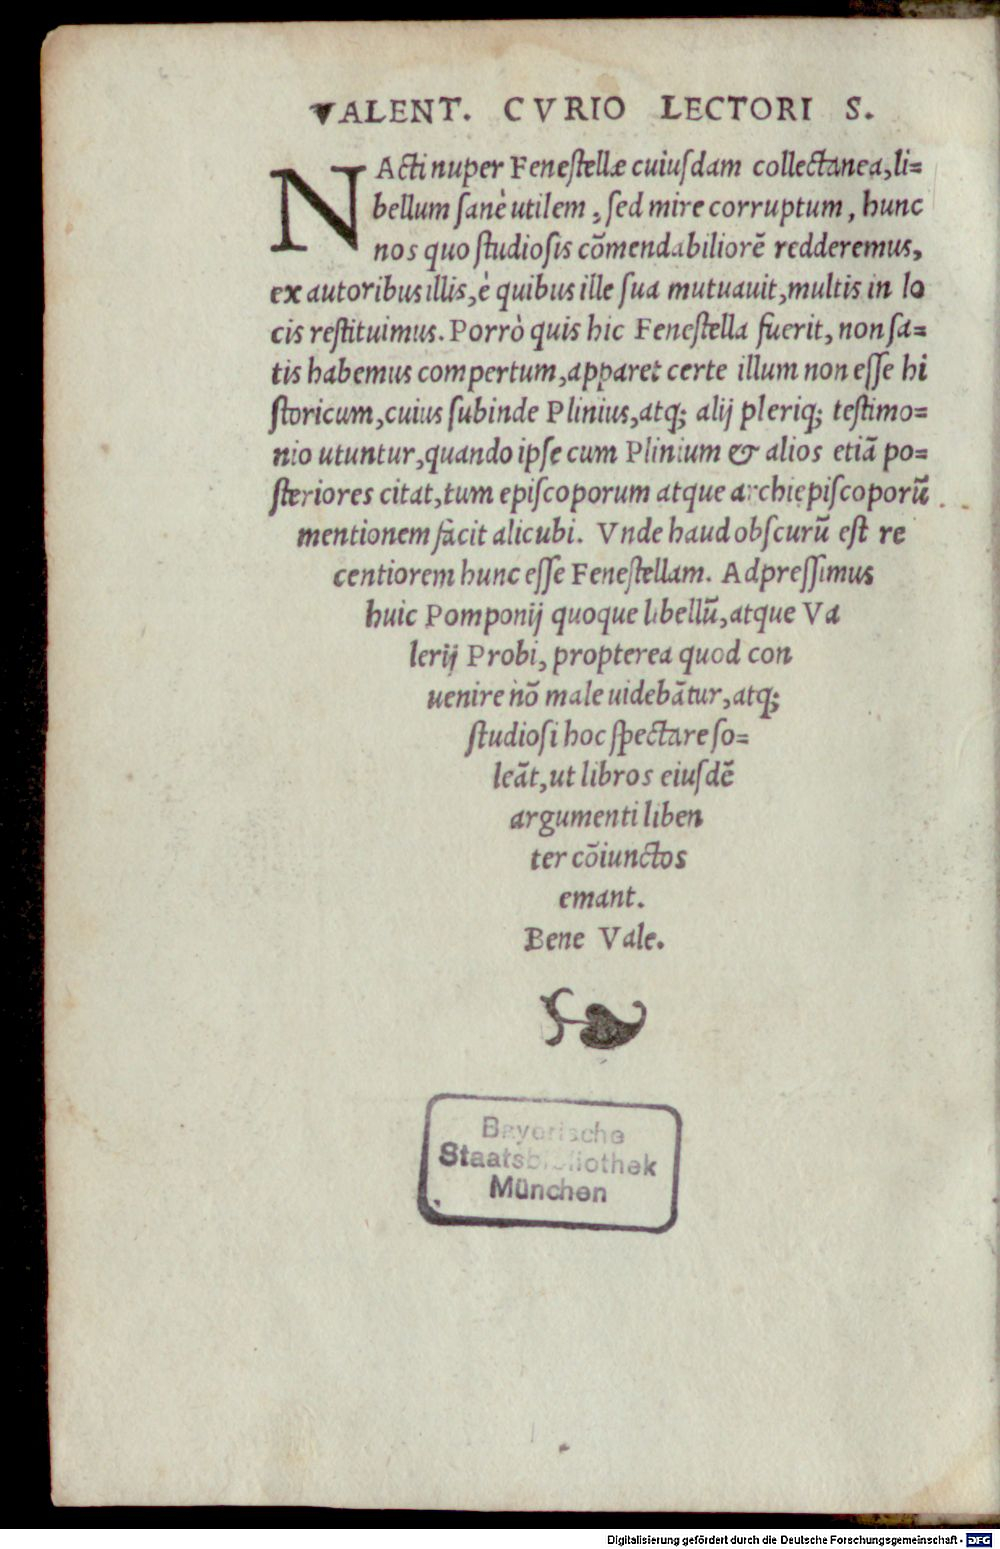 VALENT. CVRIO LECTORI S.
NActi nuper Feneſtellæ cuiuſdam collectanea, li=
bellum ſanè utilem, ſed mire corruptum, hunc
nos quo ſtudioſis cõmendabiliorẽ redderemus,
ex autoribus illis, è quibus ille ſua mutuauit, multis in lo
cis reſtituimus. Porrò quis hic Feneſtella fuerit, non ſa=
tis habemus compertum, apparet certe illum non eſſe hi
ſtoricum, cuius ſubinde Plinius, atq; alij pleriq; teſtimo=
nio utuntur, quando ipſe cum Plinium & alios etiã po=
ſteriores citat, tum epiſcoporum atque archiepiſcoporũ
mentionem facit alicubi. Vnde haud obſcurũ eſt re
centiorem hunc eſſe Feneſtellam. Adpreſſimus
huic Pomponij quoque libellũ, atque Va
lerij Probi, propterea quod con
uenire nõ male uidebãtur, atq;
ſtudioſi hoc ſpectare ſo=
leãt, ut libros eiuſdẽ
argumenti liben
ter cõiunctos
emant.
Bene Vale.
Bayerische
Staatsbibliothek
München
Digitalisierung gefördert durch die Deutsche Forschungsgemeinschaft - DFG